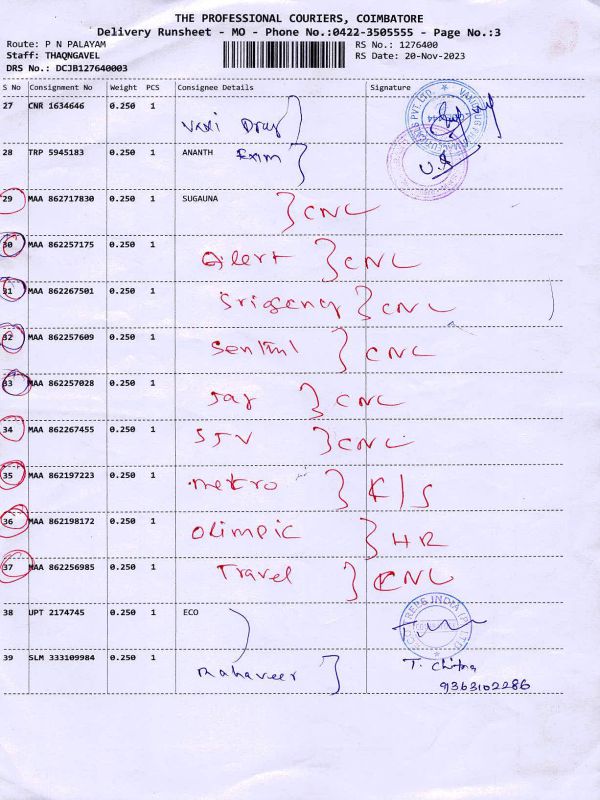 THE PROFESSIONAL COURIERS, COIMBATORE
Delivery Runsheet - MO - Phone No.:0422-3505555 - Page No.:3
Route: P N PALAYAM RS No.: 1276400
Staff: THAQNGAVEL RS Date: 20-Nov-2023
DRS No.: DCJB127640003
S No Consignment No Weight PCS Consignee Details Signature
27 CNR 1634646 0.250 1
28 TRP 5945183 0.250 1 ANANTH Exim
29 MAA 862717830 0.250 1 SUGAUNA CNL
30 MAA 862257175 0.250 1 Alert CNL
31 MAA 862267501 0.250 1 CNL
32 MAA 862257609 0.250 1 CNL
33 MAA 862257028 0.250 1 CNL
34 MAA 862267455 0.250 1 CNL
35 MAA 862197223 0.250 1 metro
36 MAA 862198172 0.250 1 OLIMPIC HR
37 MAA 862256985 0.250 1 Travel CNL
38 UPT 2174745 0.250 1 ECO
39 SLM 333109984 0.250 1 Mahaveer T. Chitra
9363102286